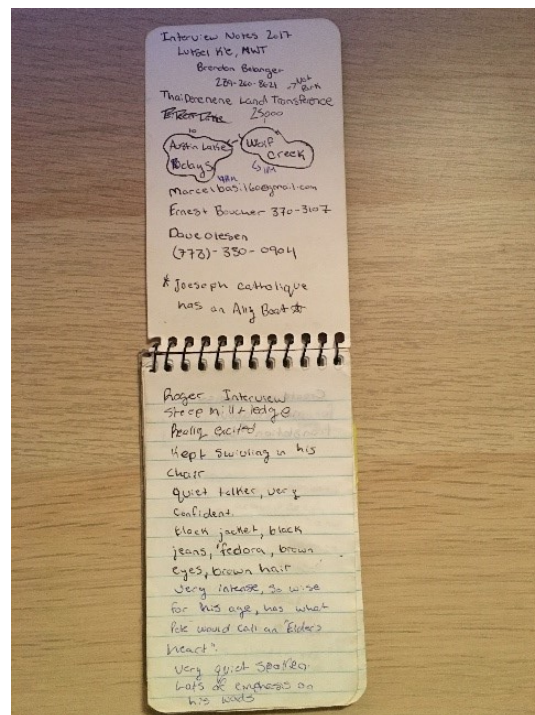 Interview Notes 2017
Lutsel K'e, NWT
Brendon Belanger
289-260-8621 → Nat Park
Thaidenene Land Transference
25,000
10
Austin Lake
days
Wolf
Creek
Marcelbasil60@gmail.com
Ernest Boucher 370-3107
Dave Olesen
(773)-330-0904
* Joeseph Catholique
has an Ally Boat *
Roger Interview
Steep hill + ledge
Really excited
Kept swivling in his
Chair
quiet talker, very
Confident.
black jacket, black
jeans, fedora, brown
eyes, brown hair
very intense, so wise
for his age, has what
Pete would call an "Elders
heart".
very quiet spoken.
Lots of emphasis on
his words